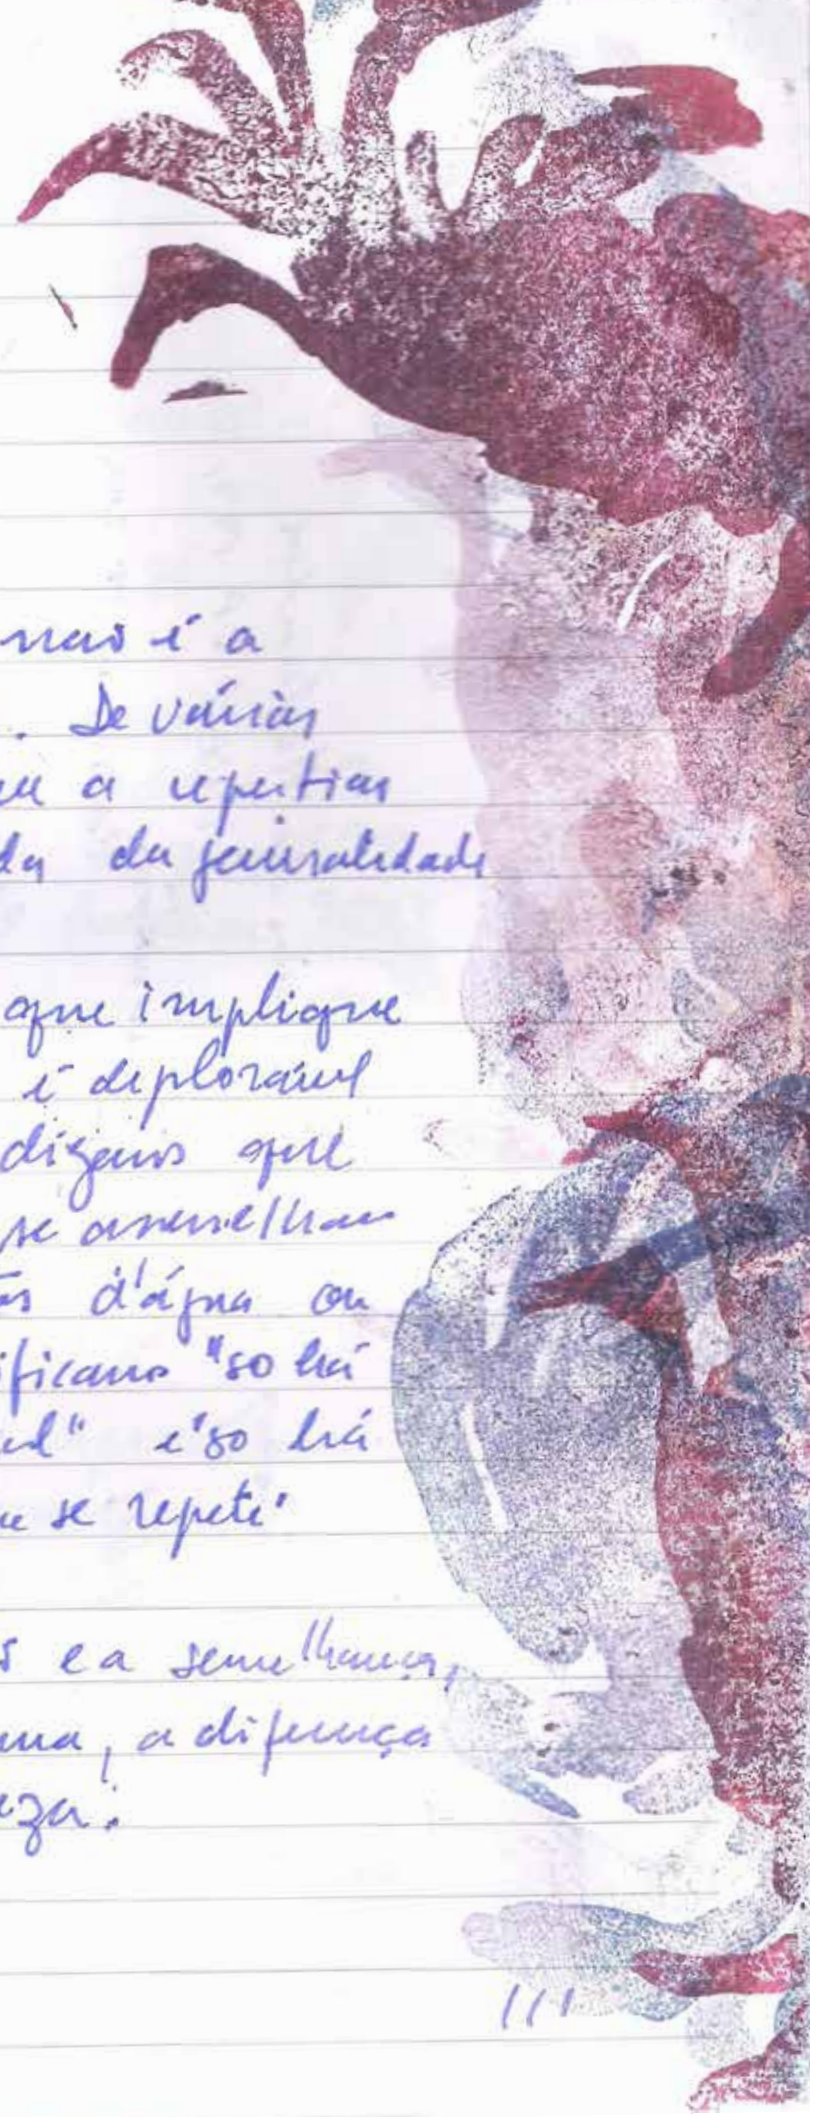 não é a
. De várias
a repetias
da generalidade
que implique
é deplorável
digamos que
se assemelham
d'água ou
ificano "so há
" e "so há
se repete"
e a semelhança,
, a diferença
eza:
111